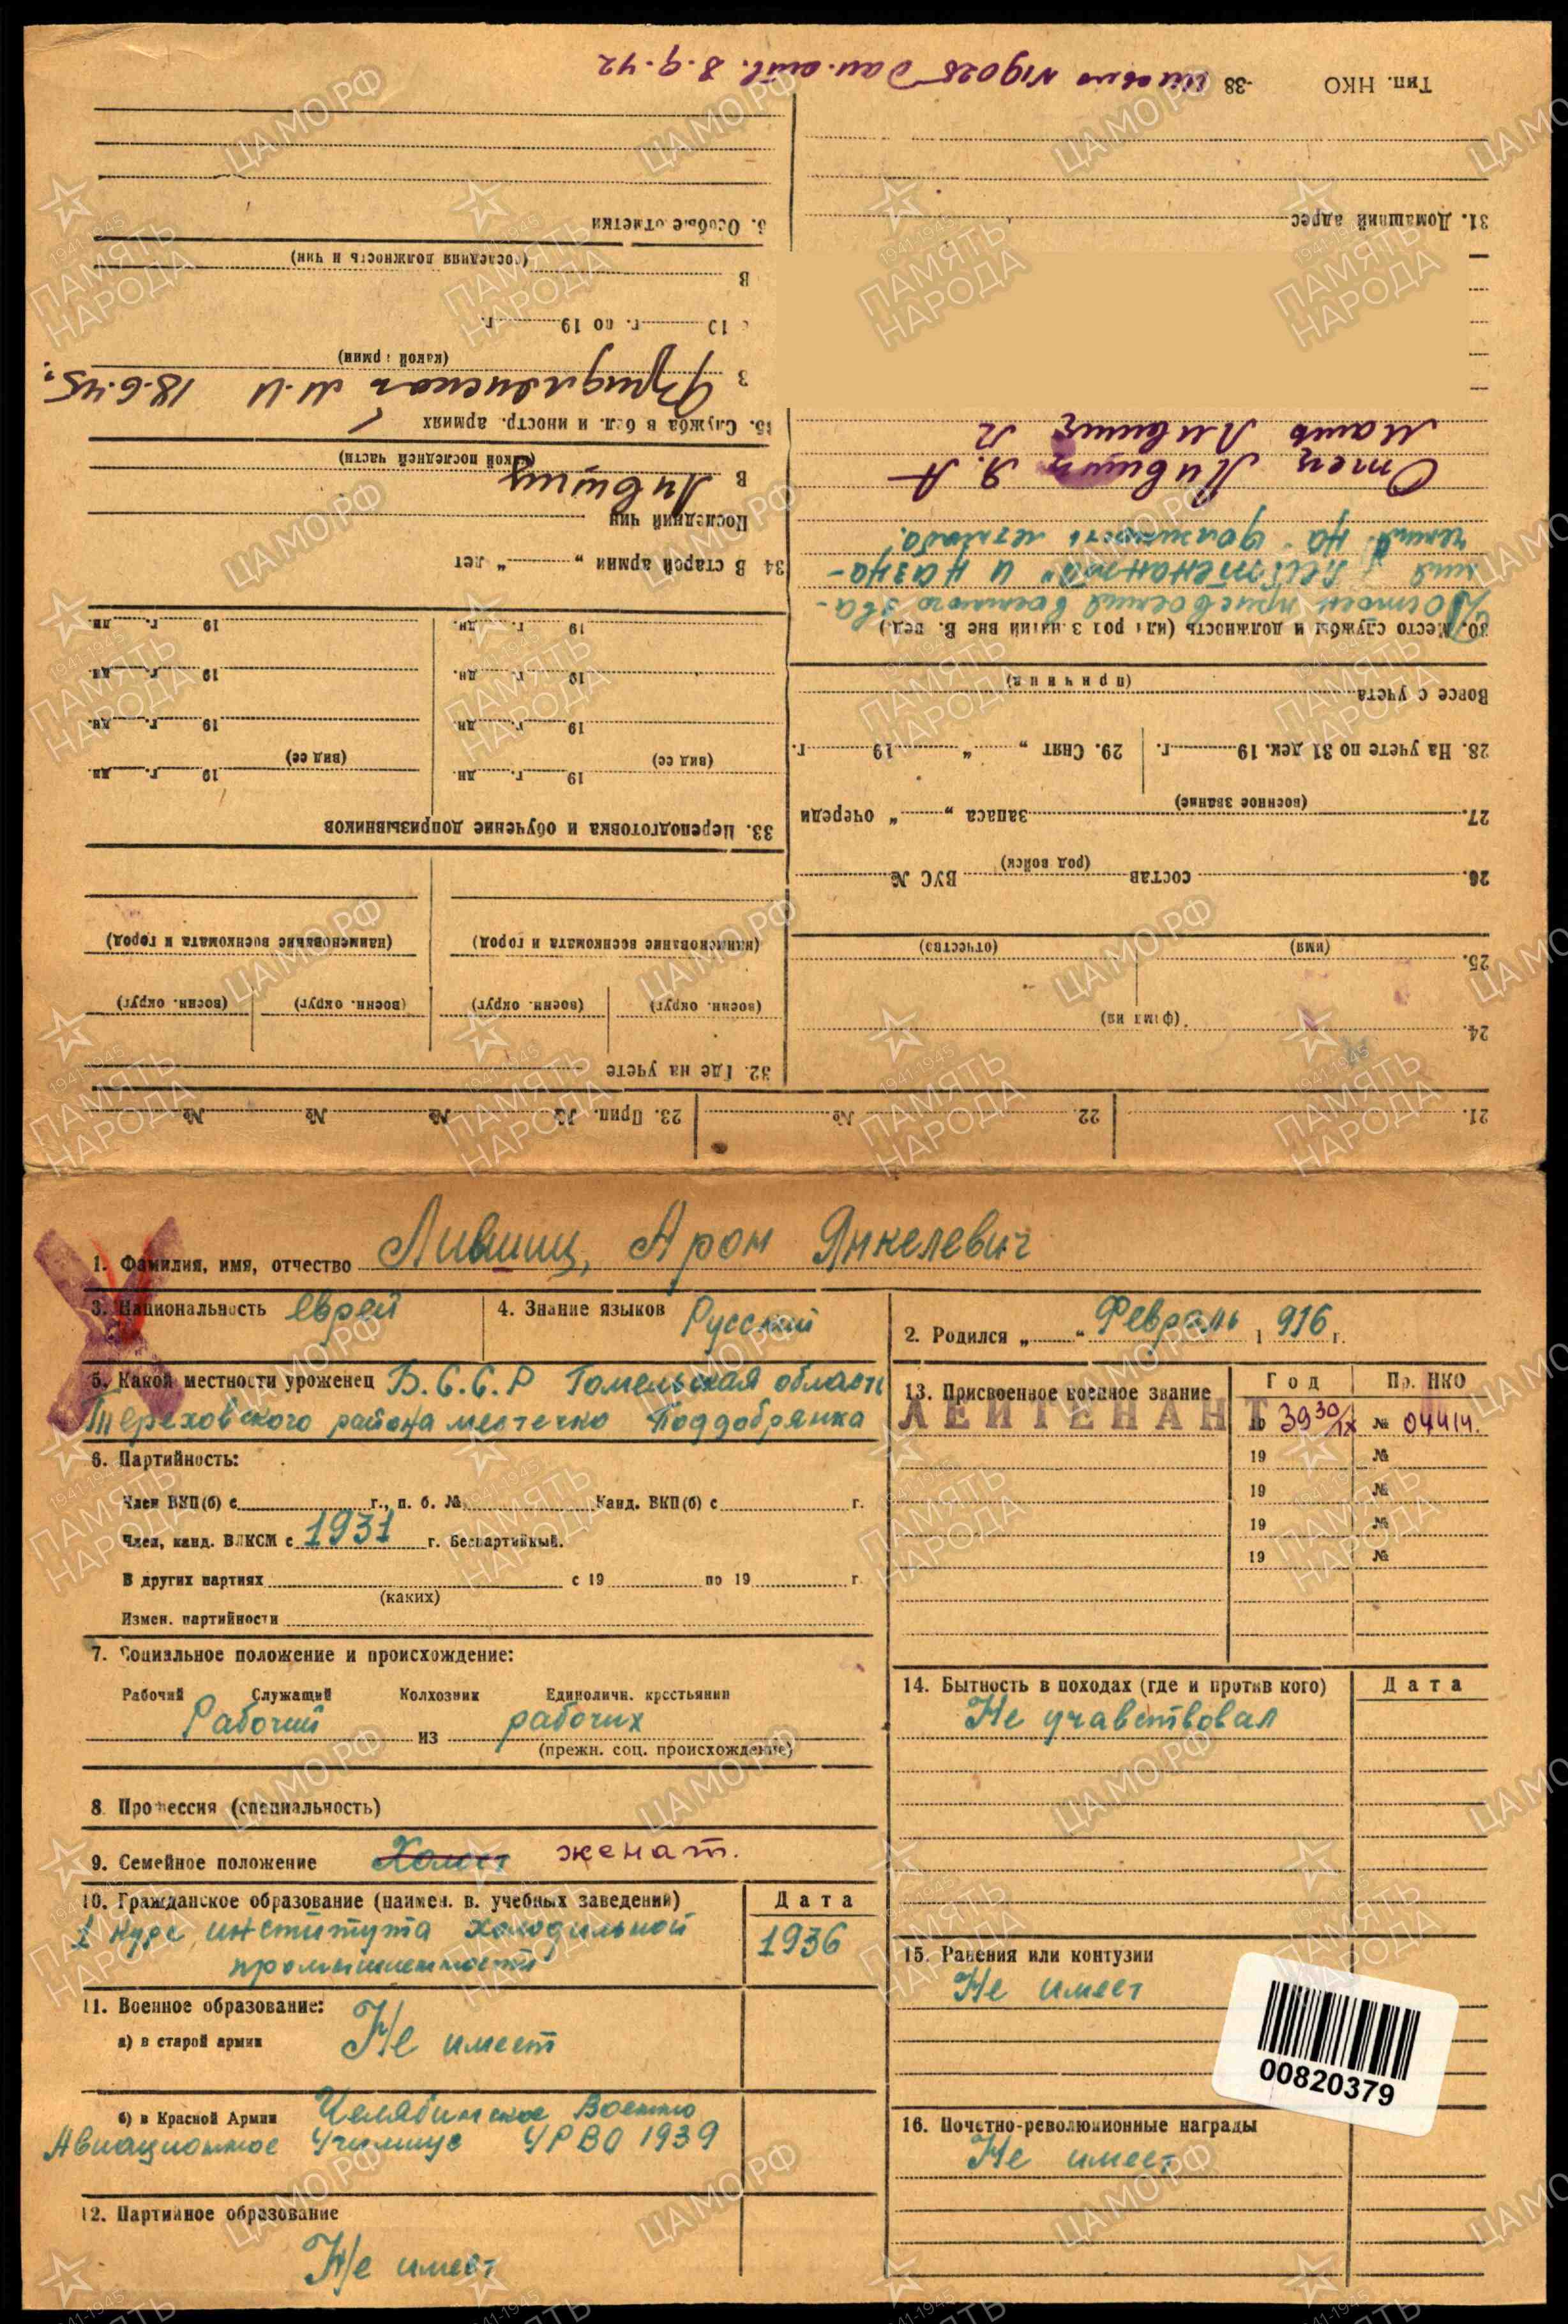 1. Фамилия, имя, отчество Лившиц, Арон Янкелевич
3. Национальность еврей
4. Знание языков Русский
2. Родился „ “ Февраль 1916 г.
5. Какой местности уроженец Б.С.С.Р Гомельская область
Тереховского района местечко Поддобрянка
6. Партийность:
Член ВКП(б) с г., п. б. № Канд. ВКП(б) с г.
Член, канд. ВЛКСМ с 1931 г. Беспартийный.
В других партиях с 19 по 19 г.
(каких)
Измен. партийности
7. Социальное положение и происхождение:
Рабочий Служащий Колхозник Единоличн. крестьянин
Рабочий из рабочих
(прежн. соц. происхождение)
8. Профессия (специальность)
9. Семейное положение Холост женат.
10. Гражданское образование (наимен. в. учебных заведений) Дата
1 курс института холодильной
промышленности 1936
11. Военное образование:
а) в старой армии Не имеет
б) в Красной Армии Челябинское Военно
Авиационное Училище УРВО 1939
12. Партийное образование
Не имеет
13. Присвоенное военное звание Год Пр. НКО
ЛЕЙТЕНАНТ 19 39 30/IX № 04414.
19 №
19 №
19 №
19 №
14. Бытность в походах (где и против кого) Дата
Не учавствовал
15. Ранения или контузии
Не имеет
00820379
16. Почетно-революционные награды
Не имеет
21. 22. № 23. Прип. № № № №
24.
(фамилия)
25.
(имя) (отчество)
26. состав ВУС №
(род войск)
27. запаса „ “ очереди
(военное звание)
28. На учете по 31 дек. 19 г. 29. Снят „ “ 19 г.
Вовсе с учета
(причина)
30. Место службы и должность (или род занятий вне В. вед.)
Достоин присвоения военного зва-
ния „Лейтенанта“ и назна-
чения на должность летнаба.
Отец Лившиц Я. А
Мать Лившиц Л
31. Домашний адрес
Тип. НКО -38
N19028 8.9.42
32. Где на учете
(воен. округ) (воен. округ) (воен. округ) (воен. округ)
(наименование военкомата и город) (наименование военкомата и город)
33. Переподготовка и обучение допризывников
19 г. дн. 19 г. дн.
(вид ее) (вид ее)
19 г. дн. 19 г. дн.
19 г. дн. 19 г. дн.
19 г. дн. 19 г. дн.
34 В старой армии „ “ лет
Последний чин
в Лившиц
(какой последней части)
35. Служба в бел. и иностр. армиях
в Фридлянская М.И 18.6.45г.
(какой армии)
с 19 г. по 19 г.
в
(последняя должность и чин)
6. Особые отметки
ЦАМО.РФ
1941-1945
ПАМЯТЬ
НАРОДА